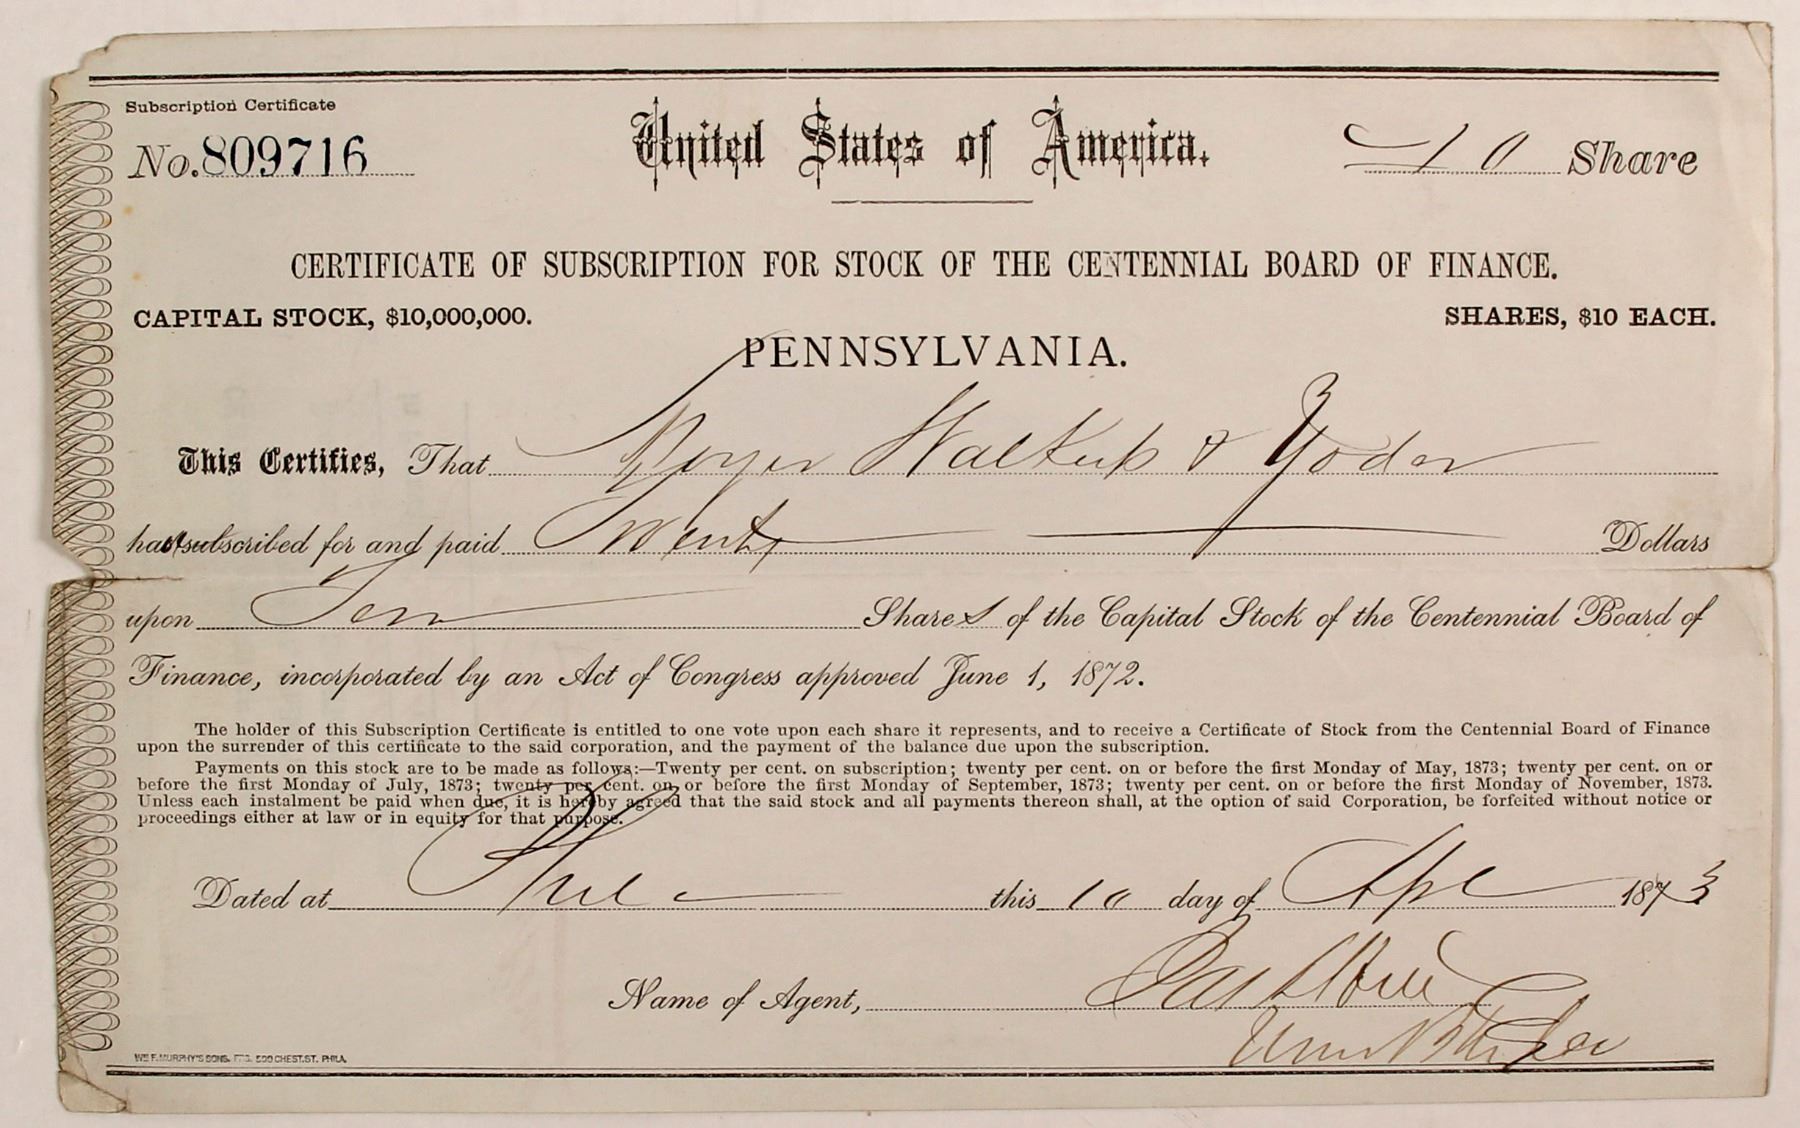 Subscription Certificate
No. 809716
United States of America.
10 Share
CERTIFICATE OF SUBSCRIPTION FOR STOCK OF THE CENTENNIAL BOARD OF FINANCE.
CAPITAL STOCK, $10,000,000.
SHARES, $10 EACH.
PENNSYLVANIA.
This Certifies, That Moyer Walkup & Yoder
subscribed for and paid Twenty Dollars
upon Ten Shares of the Capital Stock of the Centennial Board of
Finance, incorporated by an Act of Congress approved June 1, 1872.
The holder of this Subscription Certificate is entitled to one vote upon each share it represents, and to receive a Certificate of Stock from the Centennial Board of Finance
upon the surrender of this certificate to the said corporation, and the payment of the balance due upon the subscription.
Payments on this stock are to be made as follows:—Twenty per cent. on subscription; twenty per cent. on or before the first Monday of May, 1873; twenty per cent. on or
before the first Monday of July, 1873; twenty per cent. on or before the first Monday of September, 1873; twenty per cent. on or before the first Monday of November, 1873.
Unless each instalment be paid when due, it is hereby agreed that the said stock and all payments thereon shall, at the option of said Corporation, be forfeited without notice or
proceedings either at law or in equity for that purpose.
Dated at Phila this 10 day of Apl 1873
Name of Agent,
WM F. MURPHY'S SONS. 509 CHEST. ST. PHILA.